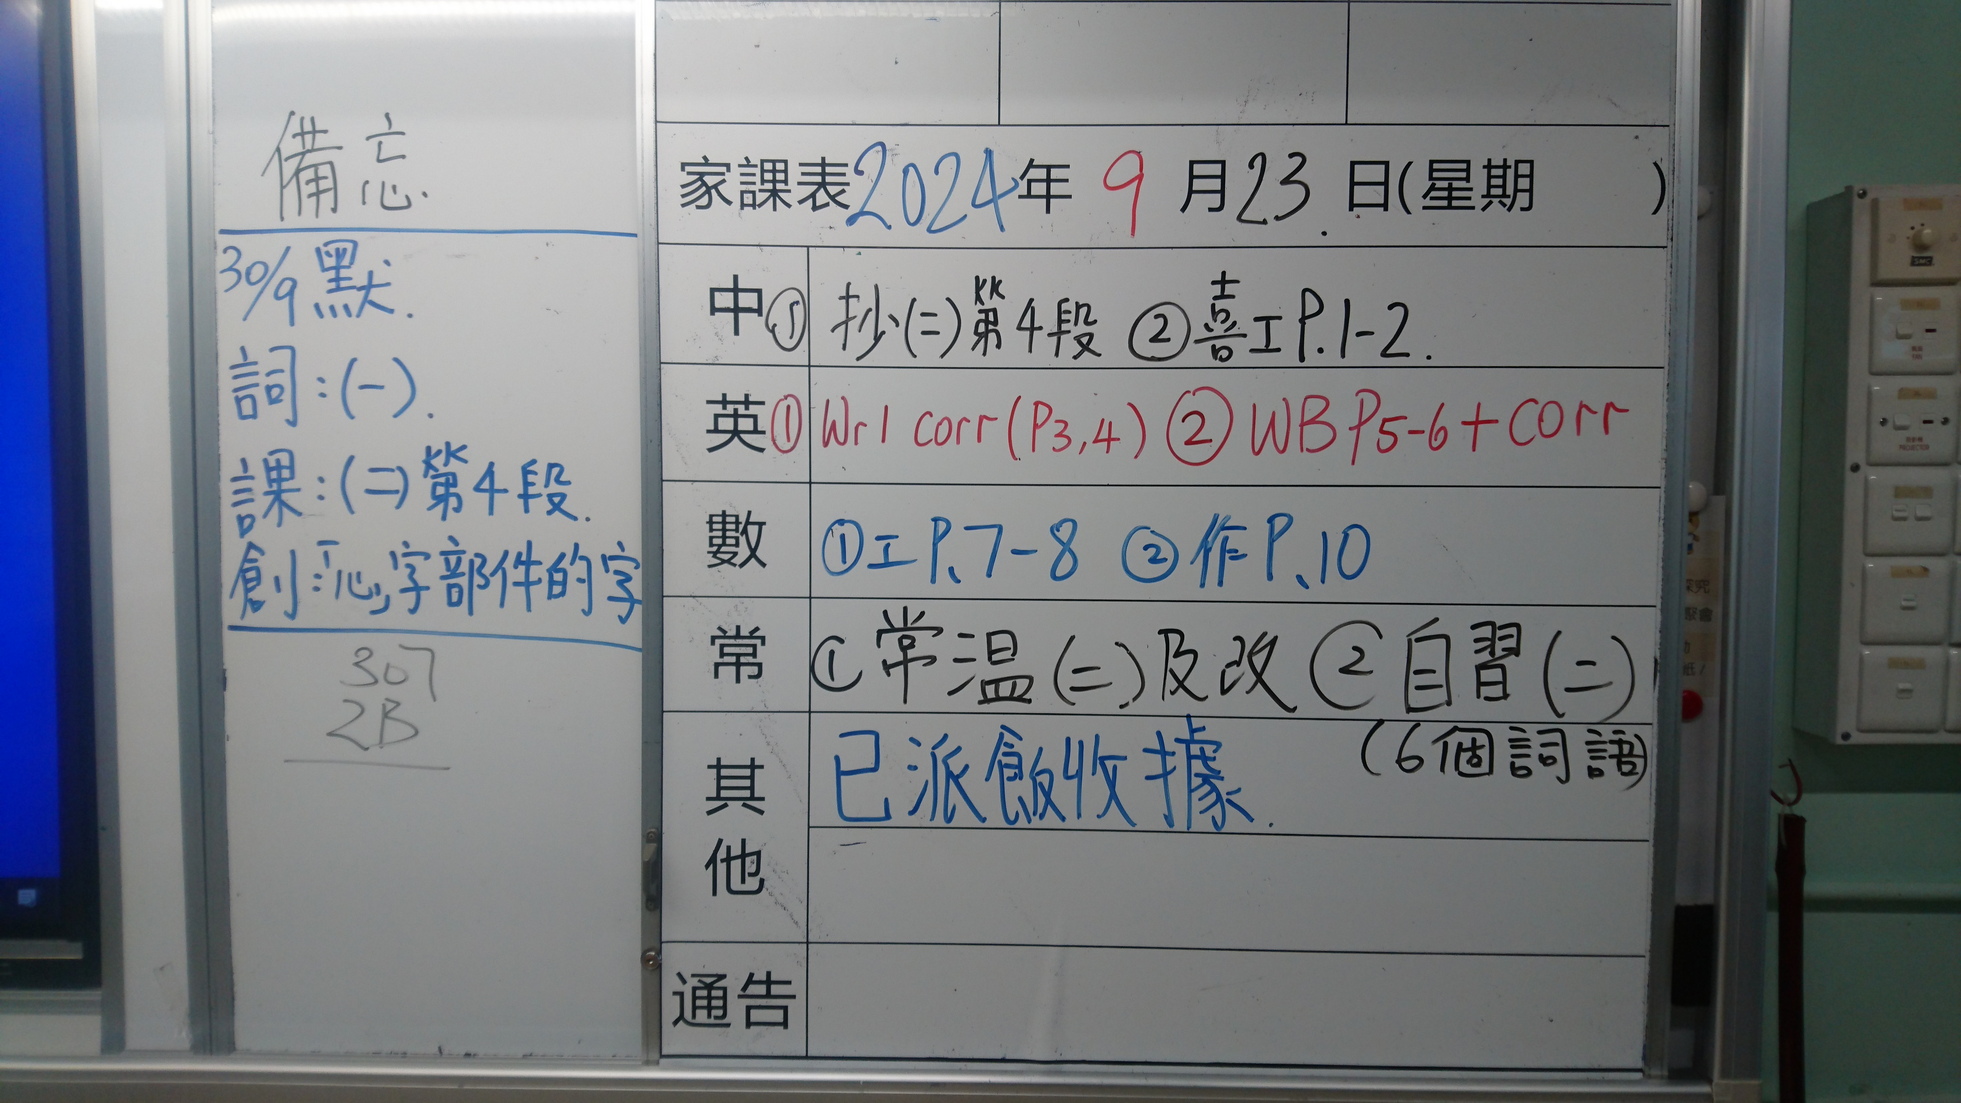 備忘.
30/9 默.
詞:(一).
課:(二)第4段.
創:「心」字部件的字
307
2B
家課表2024年 9 月23.日(星期 )
中① 抄(二)第4段 ②喜工P.1-2.
英① Wr1 corr(P3,4) ② WB P5-6+corr
數 ①工P.7-8 ②作P.10
常 ①常温(二)及改 ②自習(二)
(6個詞語)
其他 已派飯收據.
通告